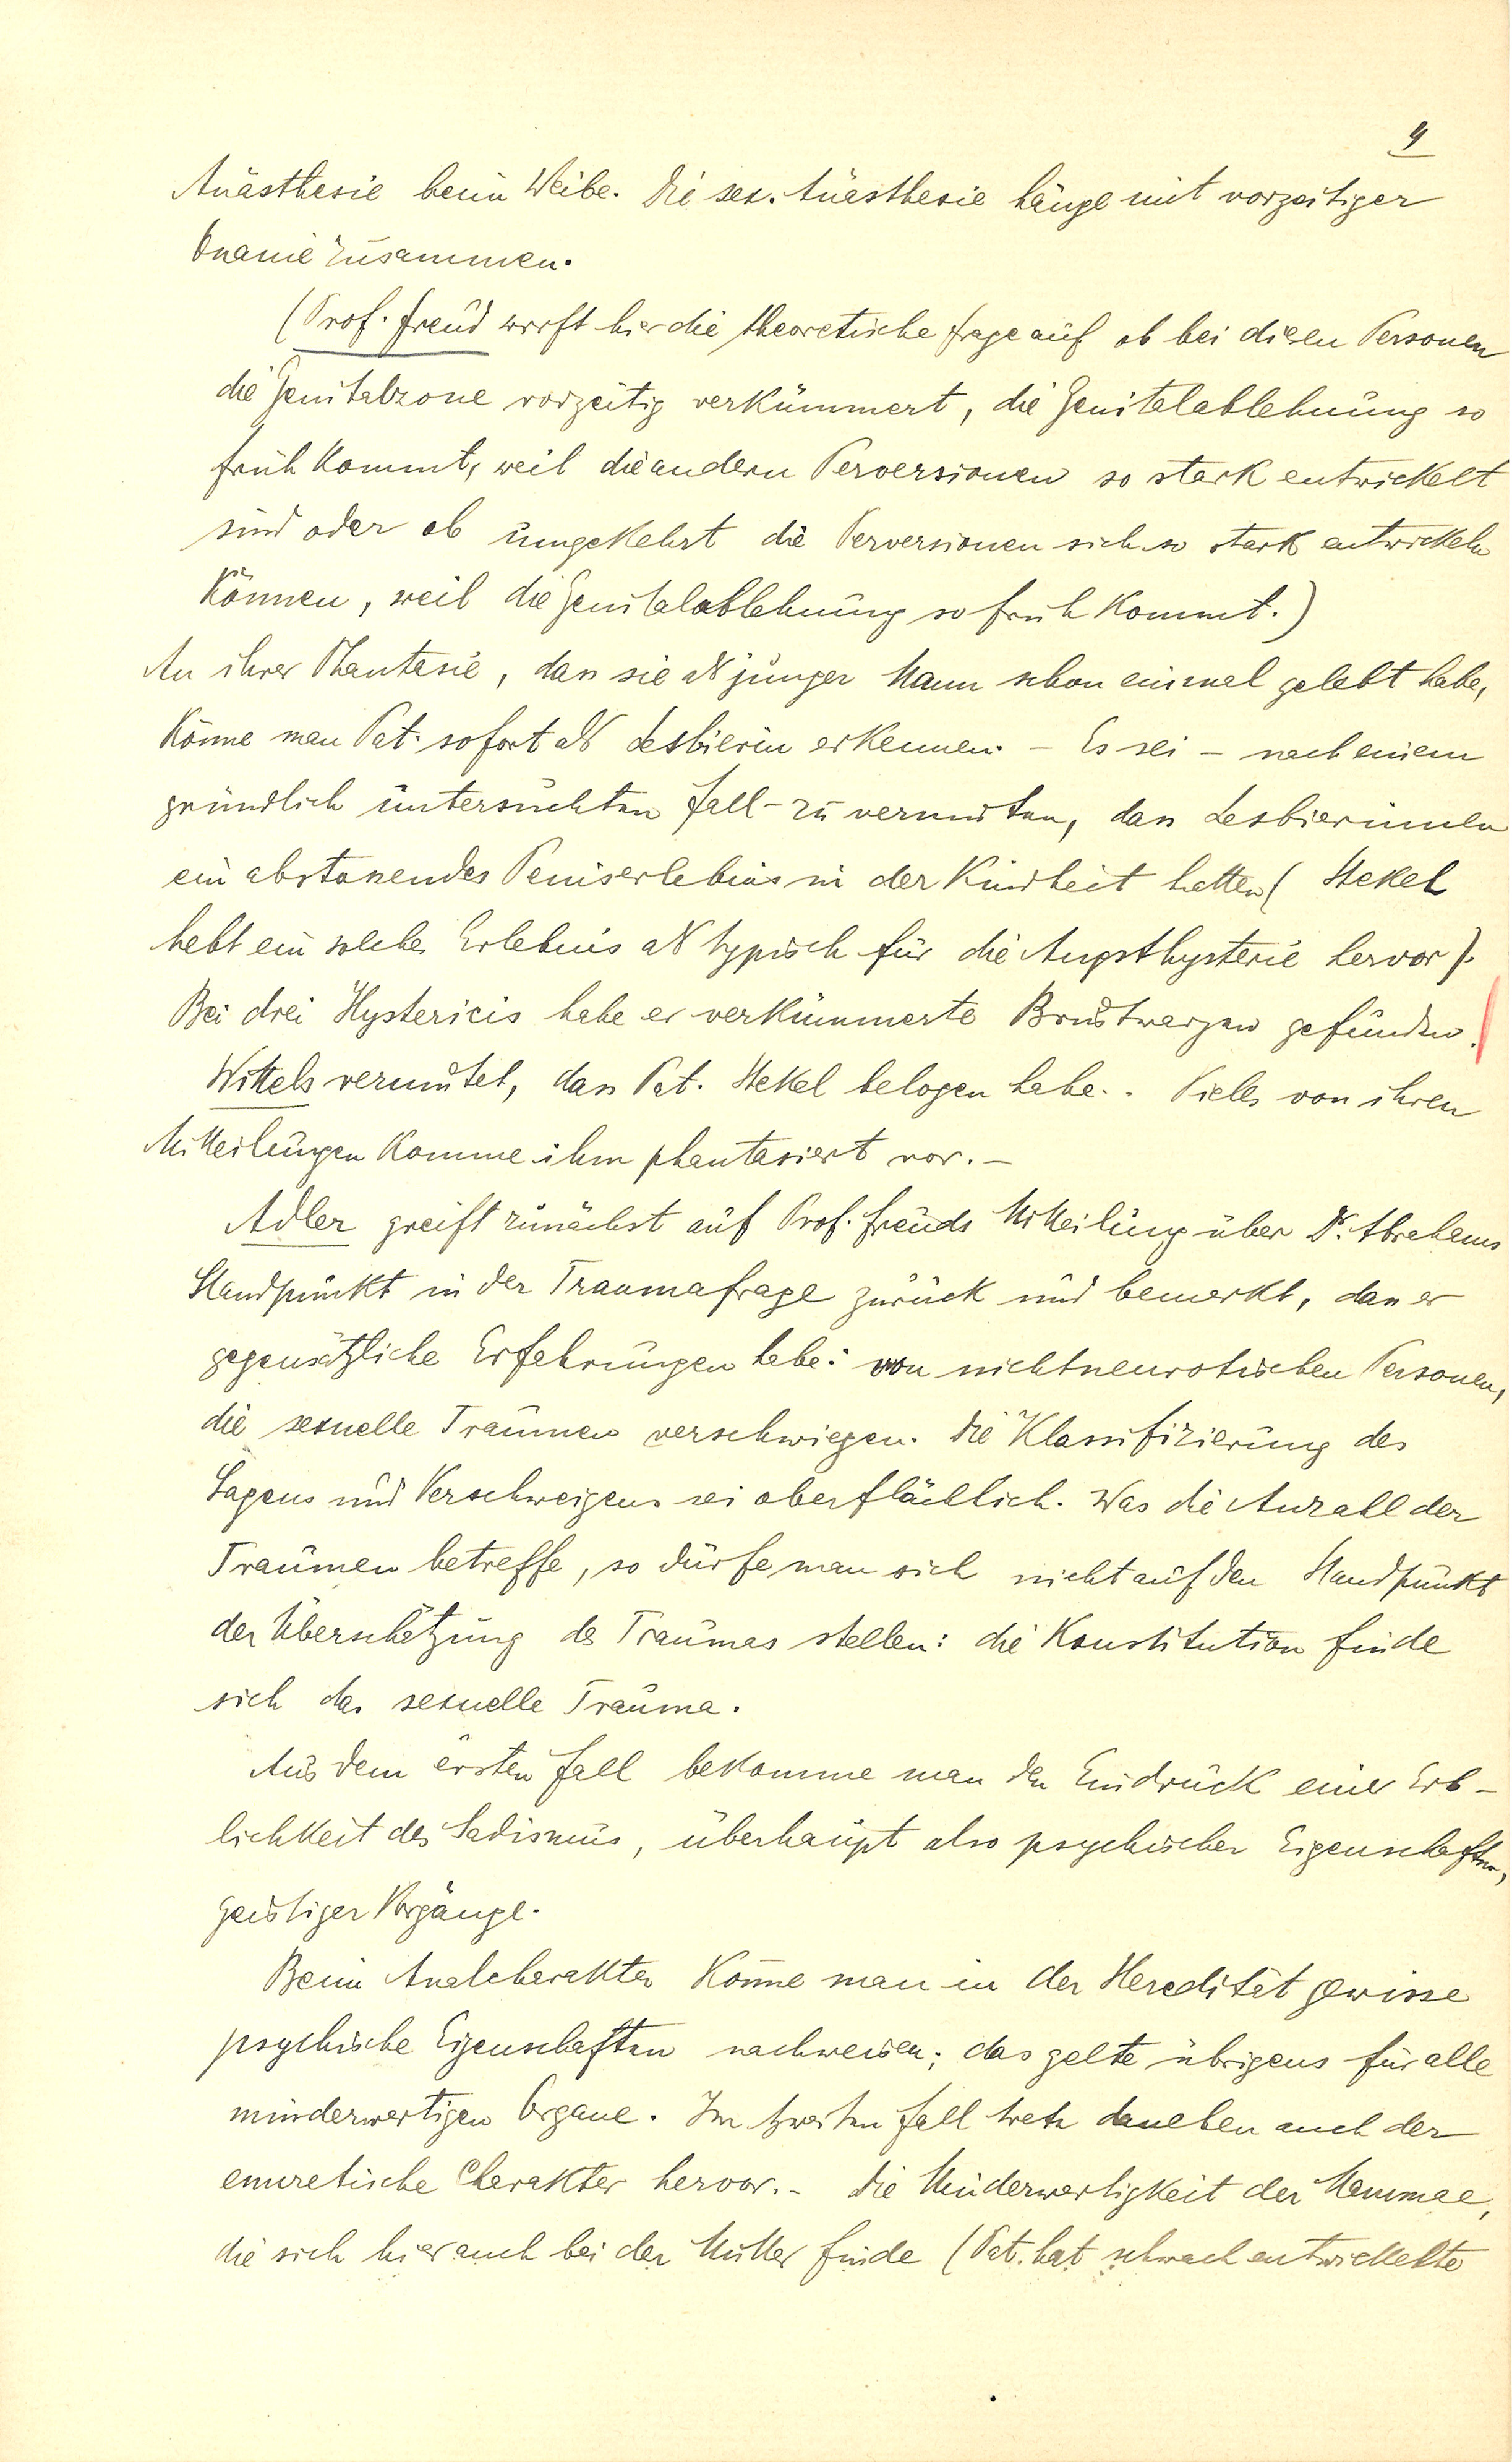 4
Anästhesie beim Weibe. Die sex. Anästhesie hänge mit vorzeitiger
Onanie zusammen.
(Prof. Freud wirft hier die theoretische Frage auf ob bei diesen Personen
die Genitalzone vorzeitig verkümmert, die Genitalablehnung so
früh kommt, weil die andern Perversionen so stark entwickelt
sind oder ob umgekehrt die Perversionen sich so stark entwickeln
können, weil die Genitalablehnung so früh kommt.)
An ihrer Phantasie, dass sie als junger Mann schon einmal gelebt habe,
könne man Pat. sofort als Lesbierin erkennen. - Es sei - nach einem
gründlich untersuchten Fall - zu vermuten, dass Lesbierinnen
ein abstossendes Peniserlebnis in der Kindheit hatten (Stekel
hebt ein solches Erlebnis als typisch für die Angsthysterie hervor).
Bei drei Hystericis habe er verkümmerte Brustwarzen gefunden.
Wittels vermutet, dass Pat. Stekel belogen habe. Vieles von ihren
Mitteilungen komme ihm phantasiert vor. -
Adler greift zunächst auf Prof. Freuds Mitteilung über Dr. Abrahams
Standpunkt in der Traumafrage zurück und bemerkt, dass er
gegensätzliche Erfahrungen habe: von nichtneurotischen Personen,
die sexuelle Traumen verschwiegen. Die Klassifizierung des
Sagens und Verschweigens sei oberflächlich. Was die Anzahl der
Traumen betreffe, so dürfe man sich nicht auf den Standpunkt
der Überschätzung des Traumas stellen: die Konstitution finde
sich das sexuelle Trauma.
Aus dem ersten Fall bekomme man den Eindruck einer Erb-
lichkeit des Sadismus, überhaupt also psychischer Eigenschaften,
geistiger Vorgänge.
Beim Analcharakter könne man in der Heredität gewisse
psychische Eigenschaften nachweisen; das gelte übrigens für alle
minderwertigen Organe. Im zweiten Fall trete daneben auch der
enuretische Charakter hervor. - Die Minderwertigkeit der Mammae,
die sich hier auch bei der Mutter finde (Pat. hat schwach entwickelte